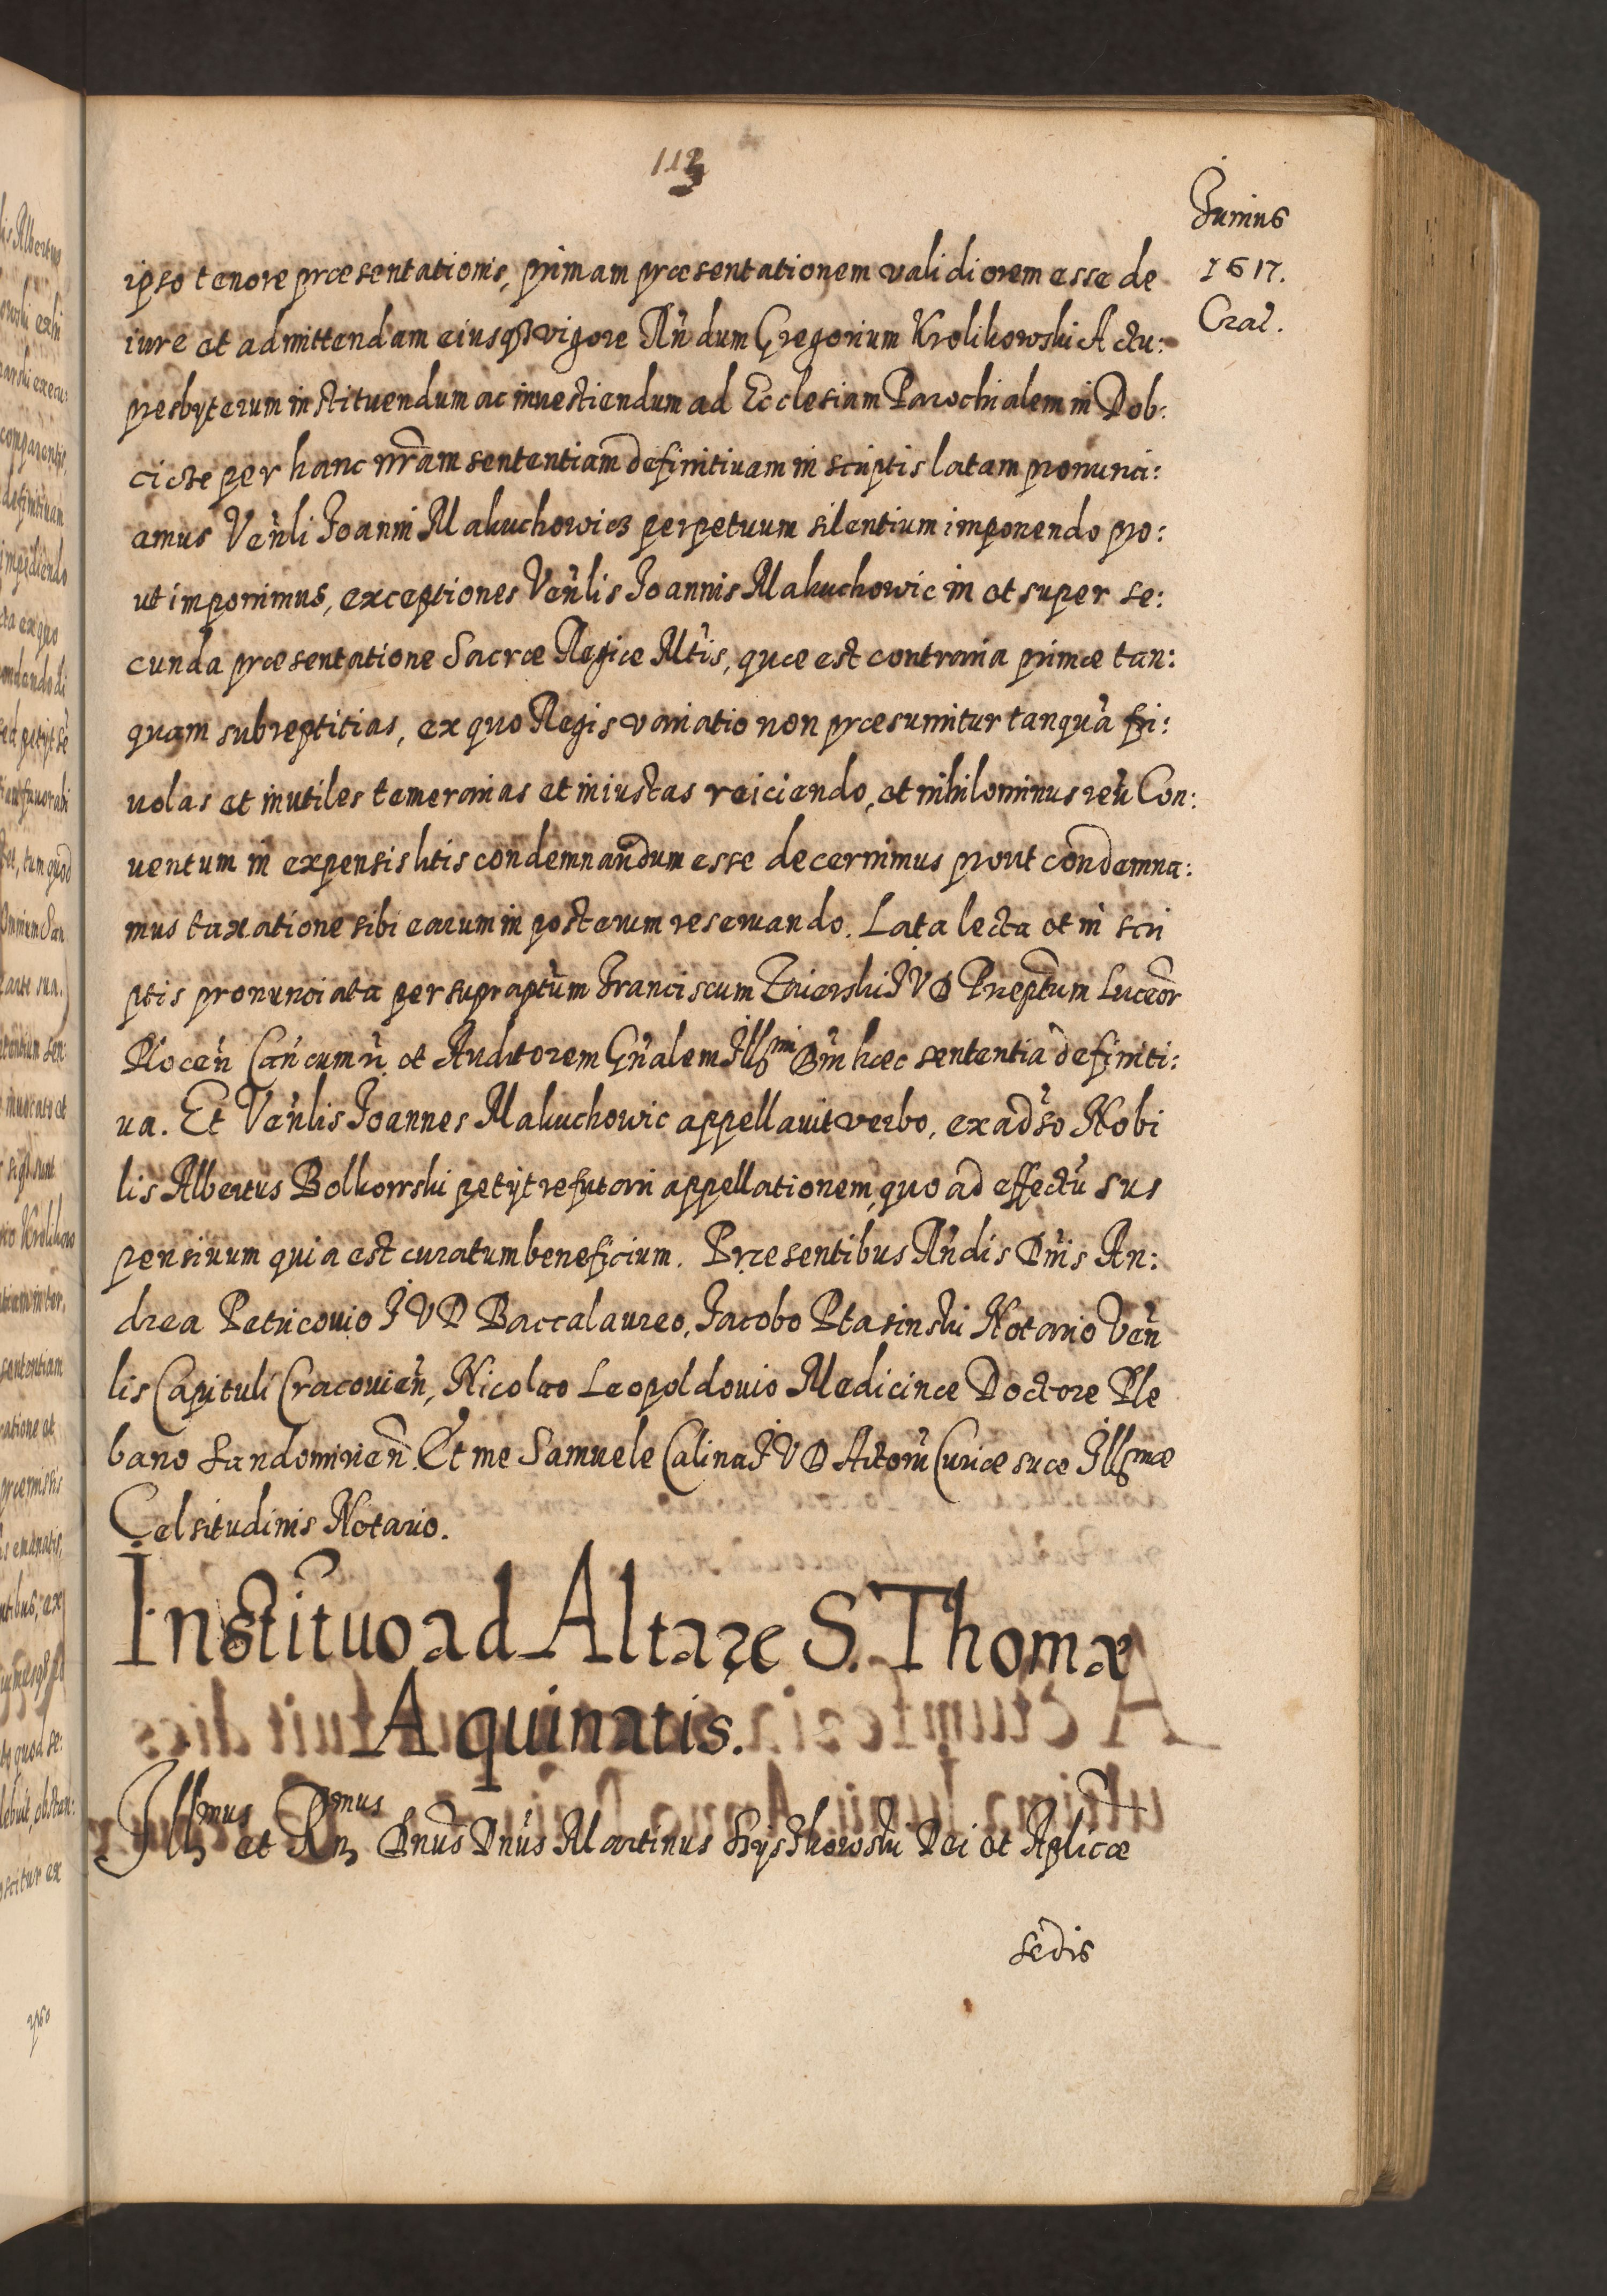 113
Junius
1617.
Crac̃.
ipso tenore præsentationis, primam præsentationem validiorem esse de
iure et admittendam eiusq̃ vigore Rñdum Gregorium Krolikowski Actu:
presbyterum instituendum ac inuestiendum ad Ecclesiam Parochialem in Dob:
cicze per hanc nr̃am sententiam definitiuam in scriptis latam pronunci:
amus Veñli Joanni Makuchowicz perpetuum silentium imponendo pro:
ut imponimus, exceptiones Veñlis Joannis Makuchowic in et super se:
cunda præsentatione Sacræ Regiæ Mtĩs, quæ est contraria primæ tan:
quam subreptitias, ex quo Regis variatio non præsumitur tanquã fri:
uolas et inutiles temerarias et iniustas reiciendo, et nihilominus reũ Con:
uentum in expensis litis condemnandum esse decernimus prout condemna:
mus taxatione sibi earum in posterum reseruando. Lata lecta et in scri
ptis pronunciata per suprapt̃um Franciscum Zaierski JVD Præpt̃um Luceor̃
Plocen̄ Can̄cum n̄ et Auditorem Gñalem Jllsmi Dñi hæc sententia definiti:
ua. Et Veñlis Joannes Makuchowic appellauit verbo, ex adũso Nobi
lis Albertus Bolkowski petijt refutari appellationem quo ad effectũ sus
pensiuum quia est curatum beneficium. Præsentibus Rñdis Dñis An:
drea Petricouio JVD Baccalaureo, Jacobo Ptasinski Notario Veñ
lis Capituli Cracouieñ, Nicolao Leopoldouio Medicinæ Doctore Ple
bano Sandomirieñ. Et me Samuele Calina JVD Actorũ Curiæ suæ Jllsmæ
Celsitudinis Notario.
Institũo ad Altare S. Thomæ
Aquinatis.
Jllsmus et Rñmus Dnũs Dñus Martinus Szyszkowski Dei et Aplicæ
sedis